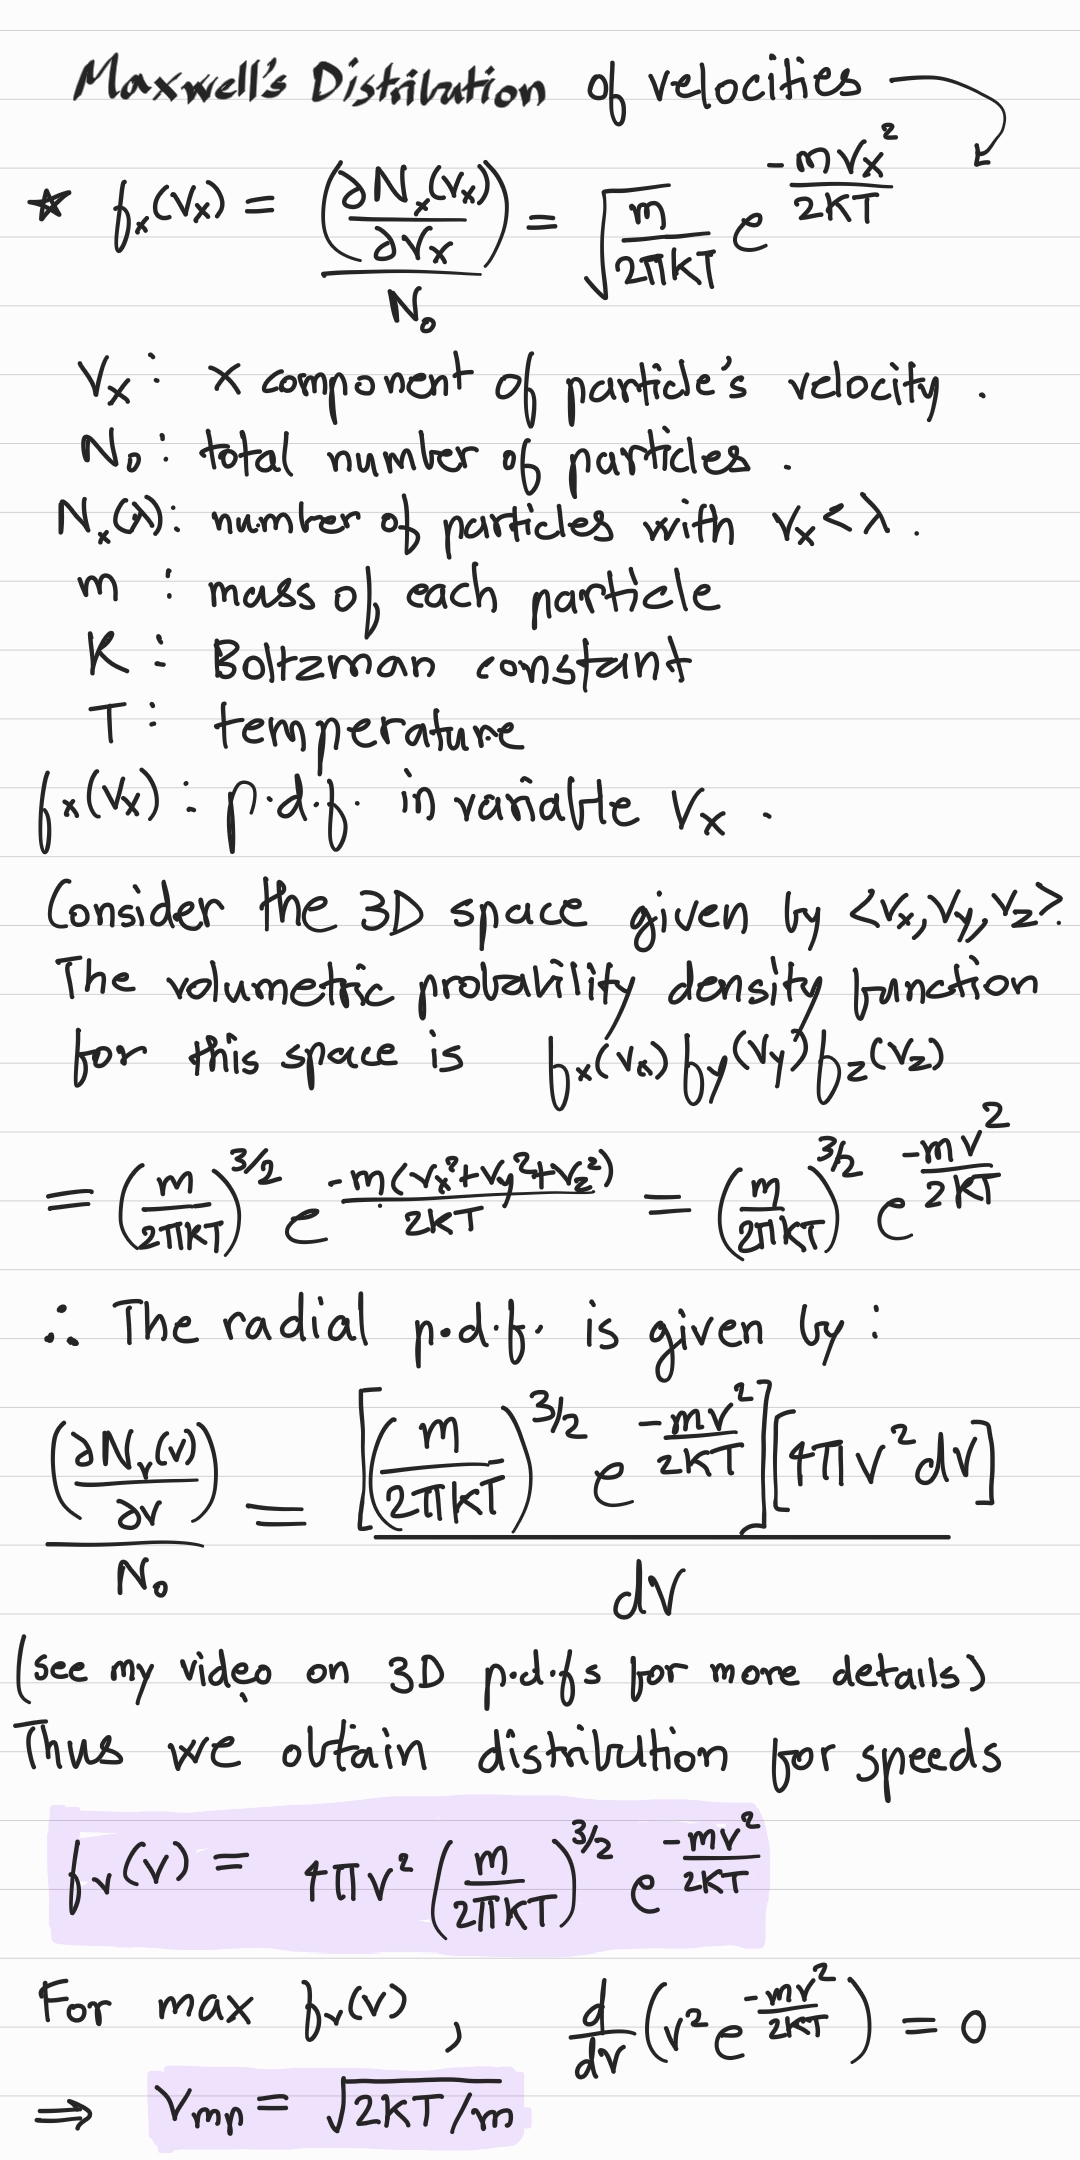 Maxwell's Distribution of velocities
☆ fₓ(Vₓ) = (∂Nₓ(Vₓ)/∂Vₓ)/N₀ = √(m/2πKT) e^(-mVₓ²/2KT)
Vₓ : x component of particle's velocity .
N₀ : total number of particles .
Nₓ(λ) : number of particles with vₓ < λ .
m : mass of each particle
K : Boltzman constant
T : temperature
fₓ(Vₓ) : p.d.f. in variable Vₓ .
Consider the 3D space given by <Vₓ, Vy, Vz>.
The volumetric probability density function
for this space is fₓ(vₓ) fy(Vy) fz(Vz)
= (m/2πKT)^(3/2) e^(-m(vₓ²+vy²+vz²)/2KT) = (m/2πKT)^(3/2) e^(-mv²/2KT)
∴ The radial p.d.f. is given by :
(∂Nv(v)/∂v)/N₀ = [(m/2πKT)^(3/2) e^(-mv²/2KT)][4πv²dv]/dv
(see my video on 3D p.d.fs for more details)
Thus we obtain distribution for speeds
fv(v) = 4πv² (m/2πKT)^(3/2) e^(-mv²/2KT)
For max fv(v) , d/dv (v² e^(-mv²/2KT)) = 0
⟹ Vmp = √(2KT/m)